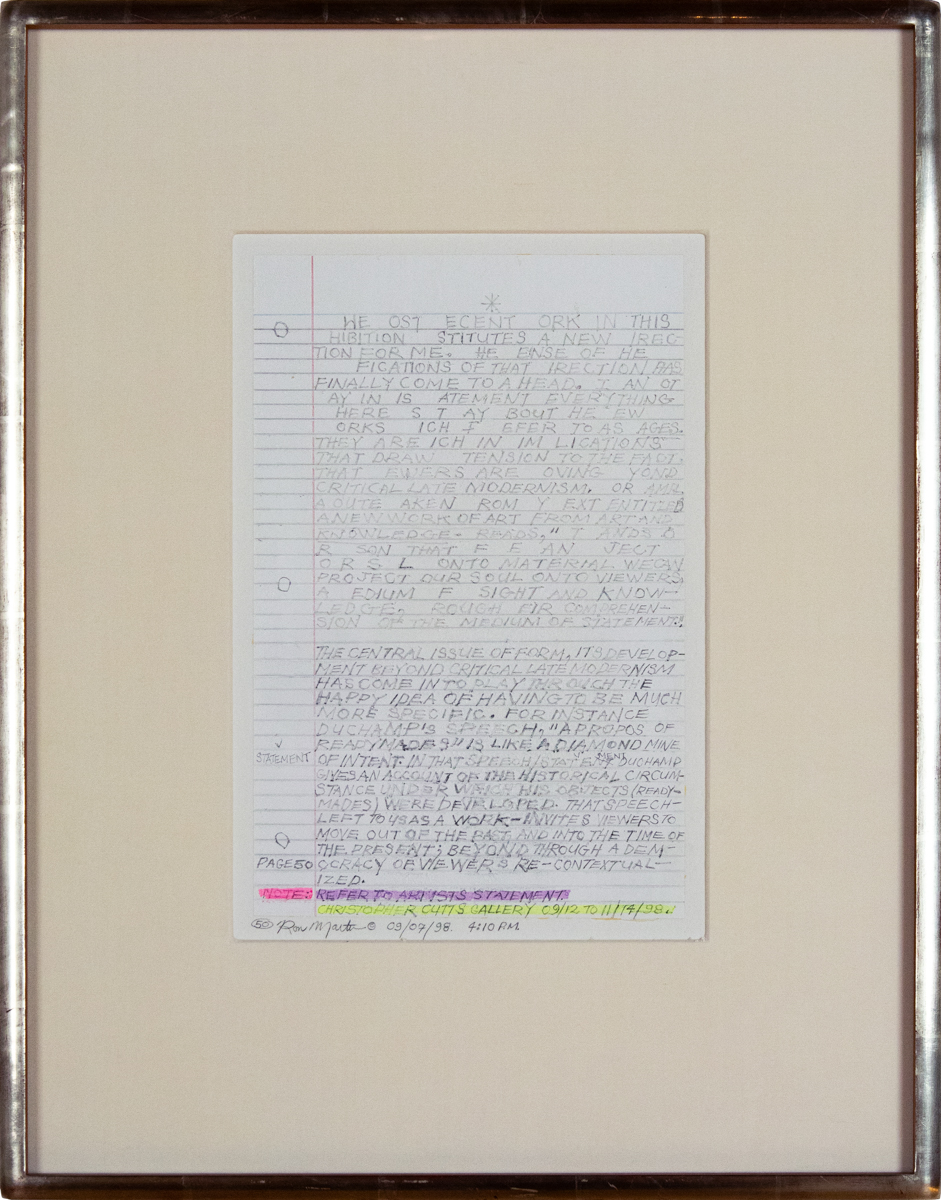 *
HE OST ECENT ORK IN THIS
HIBITION STITUTES A NEW IREC-
TION FOR ME. HE ENSE OF HE
FICATIONS OF THAT IRECTION HAS
FINALLY COME TO A HEAD. I AN OT
AY IN IS ATEMENT EVERYTHING
HERE S T AY BOUT HE EW
ORKS ICH I EFER TO AS AGES.
THEY ARE ICH IN IM LICATIONS
THAT DRAW TENSION TO THE FACT,
THAT EWERS ARE OVING YOND
CRITICAL LATE MODERNISM. OR
A OUTE AKEN ROM Y EXT ENTITLED
A NEW WORK OF ART FROM ART AND
KNOWLEDGE- READS, " T ANDS O
R SON THAT F E AN JECT
O R S L ONTO MATERIAL WE CAN
PROJECT OUR SOUL ONTO VIEWERS,
A EDIUM F SIGHT AND KNOW-
LEDGE, ROUGH EIR COMPREHEN-
SION OF THE MEDIUM OF STATEMENT."
THE CENTRAL ISSUE OF FORM, ITS DEVELOP-
MENT BEYOND CRITICAL LATE MODERNISM
HAS COME INTO PLAY THROUGH THE
HAPPY IDEA OF HAVING TO BE MUCH
MORE SPECIFIC. FOR INSTANCE
DUCHAMP'S SPEECH, "APROPOS OF
READYMADES" IS LIKE A DIAMOND MINE
STATEMENT OF INTENT. IN THAT SPEECH/STATEMENT DUCHAMP
GIVES AN ACCOUNT OF THE HISTORICAL CIRCUM-
STANCE UNDER WHICH HIS OBJECTS (READY-
MADES) WERE DEVELOPED. THAT SPEECH-
LEFT TO US AS A WORK-INVITES VIEWERS TO
MOVE OUT OF THE PAST AND INTO THE TIME OF
THE PRESENT; BEYOND THROUGH A DEM-
PAGE 50 OCRACY OF VIEWERS RE-CONTEXTUAL-
IZED.
NOTE: REFER TO ARTISTS STATEMENT
CHRISTOPHER CUTTS GALLERY 09/12 TO 11/14/98.
50 Ron Martin © 09/07/98. 4:10 PM.